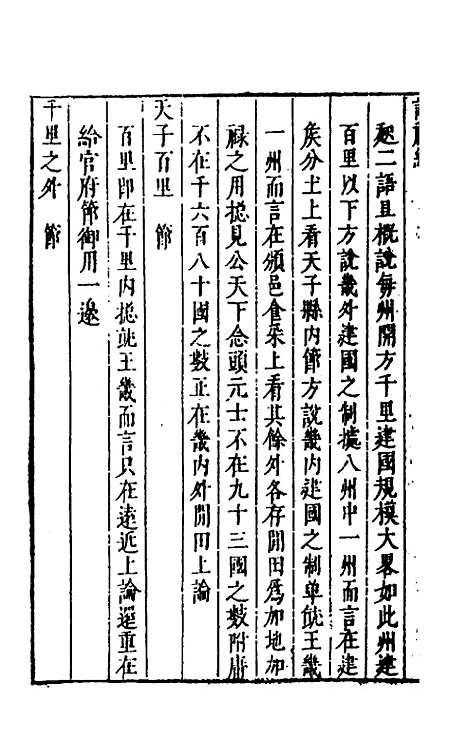 起二語且概說每州開方千里建國規模大畧如此州建
百里以下方說畿外建國之制據八州中一州而言在建
矦分土上看天子縣内節方說畿内建國之制单就王畿
一州而言在頒邑食采上看其餘外各存閒田爲加地加
禄之用捴見公天下念頭元士不在九十三國之数附庸
不在千六百八十國之数正在畿内外閒田上論
天子百里 節
百里即在千里内捴就王畿而言只在遠近上論還重在
給官府節御用一邊
千里之外 節